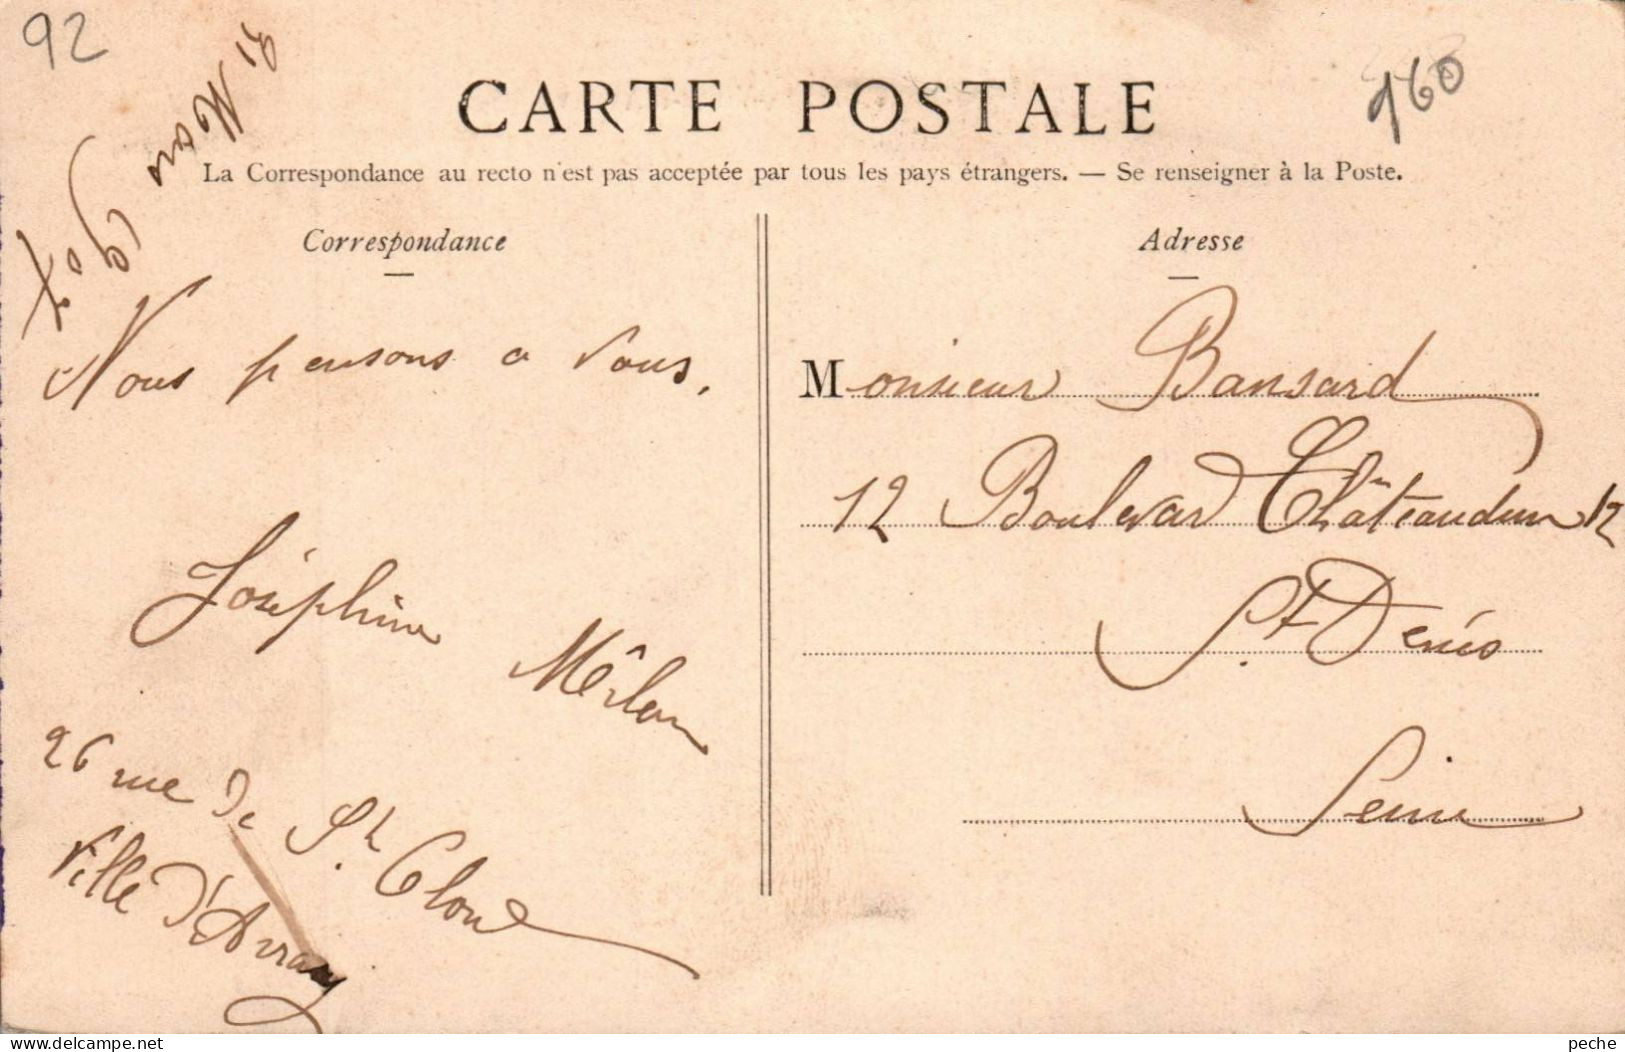 92
960
31 Mars 1907
CARTE POSTALE
La Correspondance au recto n'est pas acceptée par tous les pays étrangers. — Se renseigner à la Poste.
Correspondance
Adresse
Nous pensons a vous,
Joséphine Mêrlan
26 rue de St. Cloud
Ville d'Avray
Monsieur Bansard
12 Boulevar Châteaudun 12
St Denis
Seine
delcampe.net
peche